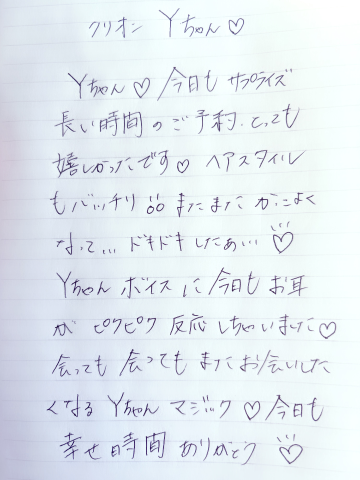 クリオン Yちゃん♡
Yちゃん♡今日も サプライズ
長い時間のご予約、とっても
嬉しかったです♡ ヘアスタイル
もバッチリ またまた かっこよく
なって... ドキドキしたぁ... ♡
Yちゃん ボイスに今日も お耳
が ピクピク 反応しちゃいました♡
会っても 会っても またお会いした
くなる Yちゃん マジック♡今日も
幸せ時間 ありがとう ♡